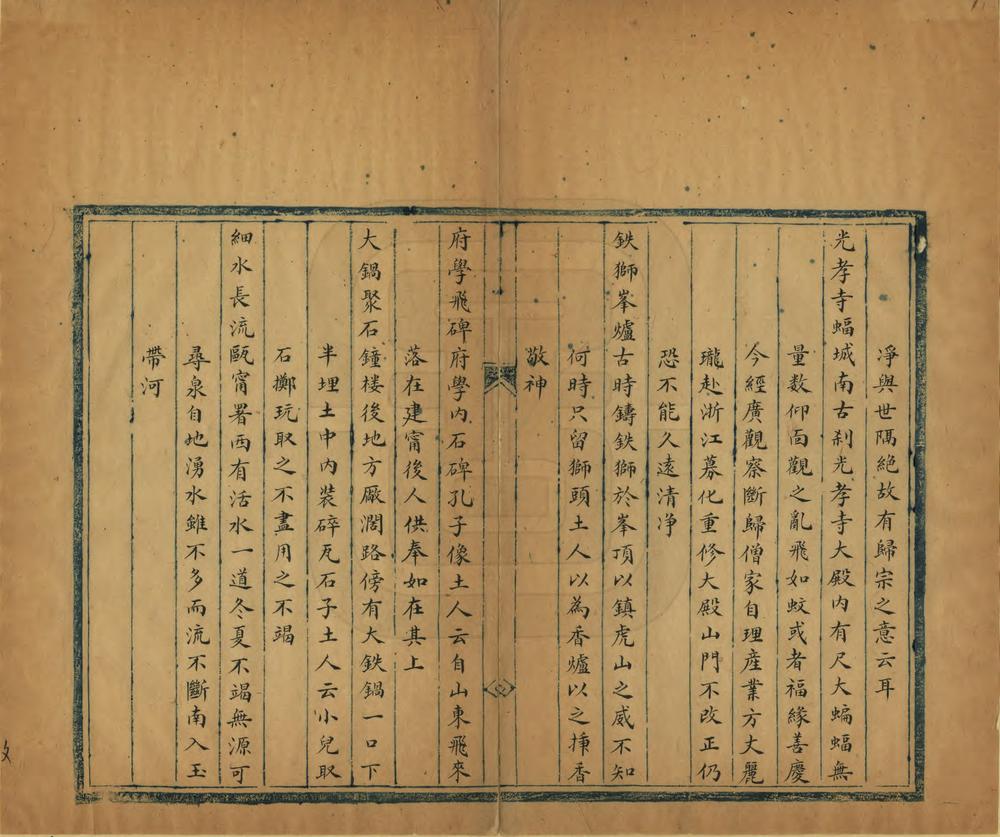 淨與世隔絶故有歸宗之意云耳
光孝寺蝠城南古刹光孝寺大殿内有尺大蝙蝠無
量数仰面觀之亂飛如蚊或者福緣善慶
今經廣觀察斷歸僧家自理産業方丈麗
瓏赴浙江募化重修大殿山門不改正仍
恐不能久遠清净
鉄獅峯爐古時鑄鉄獅於峯頂以鎮虎山之威不知
何時只留獅頭土人以為香爐以之揷香
敬神
府學飛碑府學内石碑孔子像土人云自山東飛來
落在建甯後人供奉如在其上
大鍋聚石鐘楼後地方厰濶路傍有大鉄鍋一口下
半埋土中内裝碎瓦石子土人云小兒取
石擲玩取之不盡用之不竭
細水長流甌甯署西有活水一道冬夏不竭無源可
尋泉自地湧水雖不多而流不斷南入玉
帶河